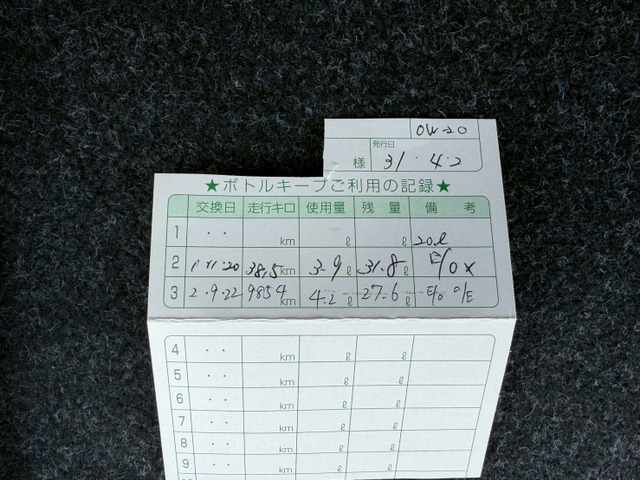 0W-20
発行日
様 31・4・2
★ボトルキープご利用の記録★
交換日 走行キロ 使用量 残 量 備 考
1 ・・ km ℓ ℓ 20ℓ
2 1・11・20 km 3.9ℓ 31.8ℓ
3 2.9.22 9854km 4.2ℓ 27.6ℓ E/o O/E
4 ・・ km ℓ ℓ
5 ・・ km ℓ ℓ
6 ・・ km ℓ ℓ
7 ・・ km ℓ ℓ
8 ・・ km ℓ ℓ
9 ・・ km ℓ ℓ